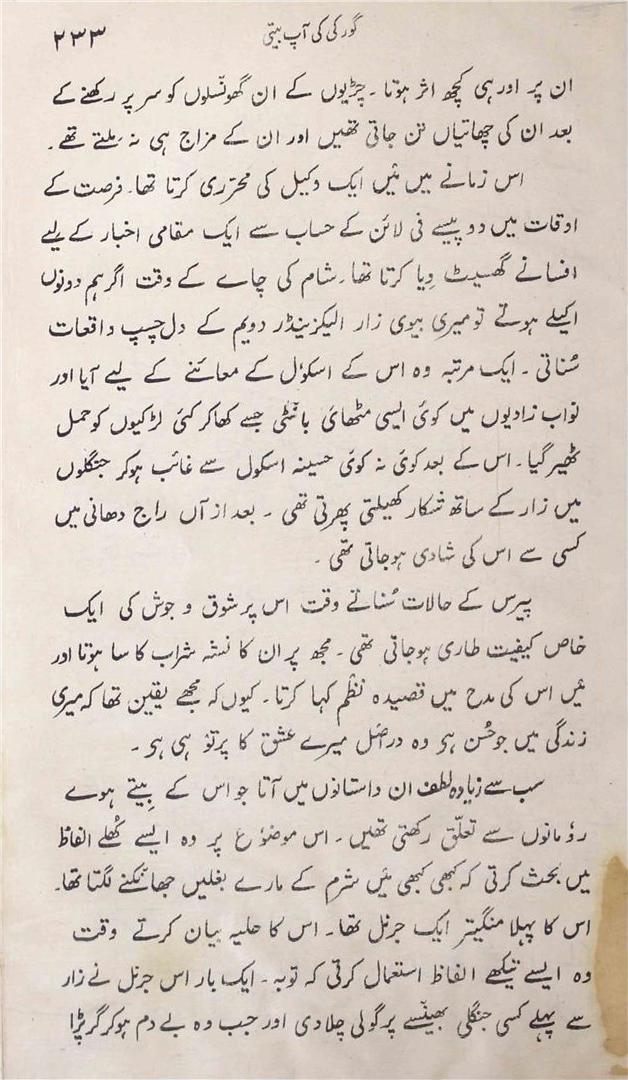 گورکی کی آپ بیتی
۲۳۳
ان پر اور ہی کچھ اثر ہوتا ۔ چڑیوں کے ان گھونسلوں کو سر پر رکھنے کے
بعد ان کی چھاتیاں تن جاتی تھیں اور ان کے مزاج ہی نہ ملتے تھے ۔
اس زمانے میں مَیں ایک وکیل کی محرّری کرتا تھا۔ فرصت کے
اوقات میں دو پیسے فی لائن کے حساب سے ایک مقامی اخبار کے لیے
افسانے گھسیٹ دِیا کرتا تھا۔ شام کی چاے کے وقت اگر ہم دونوں
اکیلے ہوتے تو میری بیوی زار الیکزینڈر دویم کے دل چسپ واقعات
سُناتی ۔ ایک مرتبہ وہ اس کے اسکول کے معائنے کے لیے آیا اور
نواب زادیوں میں کوئ ایسی مٹھائ بانٹی جسے کھا کر کئی لڑکیوں کو حمل
ٹھیر گیا ۔ اس کے بعد کوئ نہ کوئ حسینہ اسکول سے غائب ہوکر جنگلوں
میں زار کے ساتھ شکار کھیلتی پھرتی تھی ۔ بعد از آں راج دھانی میں
کسی سے اس کی شادی ہوجاتی تھی ۔
پیرس کے حالات سُناتے وقت اس پر شوق و جوش کی ایک
خاص کیفیت طاری ہوجاتی تھی ۔ مجھ پر ان کا نشہ شراب کا سا ہوتا اور
مَیں اس کی مدح میں قصیدہ نظم کہا کرتا ۔ کیوں کہ مجھے یقین تھا کہ میری
زندگی میں جو حُسن ہی وہ دراصل میرے عشق کا پرتو ہی ہی ۔
سب سے زیادہ لطف ان داستانوں میں آتا جو اس کے بیتے ہوے
رومانوں سے تعلّق رکھتی تھیں ۔ اس موضوع پر وہ ایسے کُھلے الفاظ
میں بحث کرتی کہ کبھی کبھی مَیں شرم کے مارے بغلیں جھانکنے لگتا تھا۔
اس کا پہلا منگیتر ایک جرنل تھا ۔ اس کا حلیہ بیان کرتے وقت
وہ ایسے تیکھے الفاظ استعمال کرتی کہ توبہ ۔ ایک بار اس جرنل نے زار
سے پہلے کسی جنگلی بھینسے پر گولی چلا دی اور جب وہ بے دم ہوکر گر پڑا